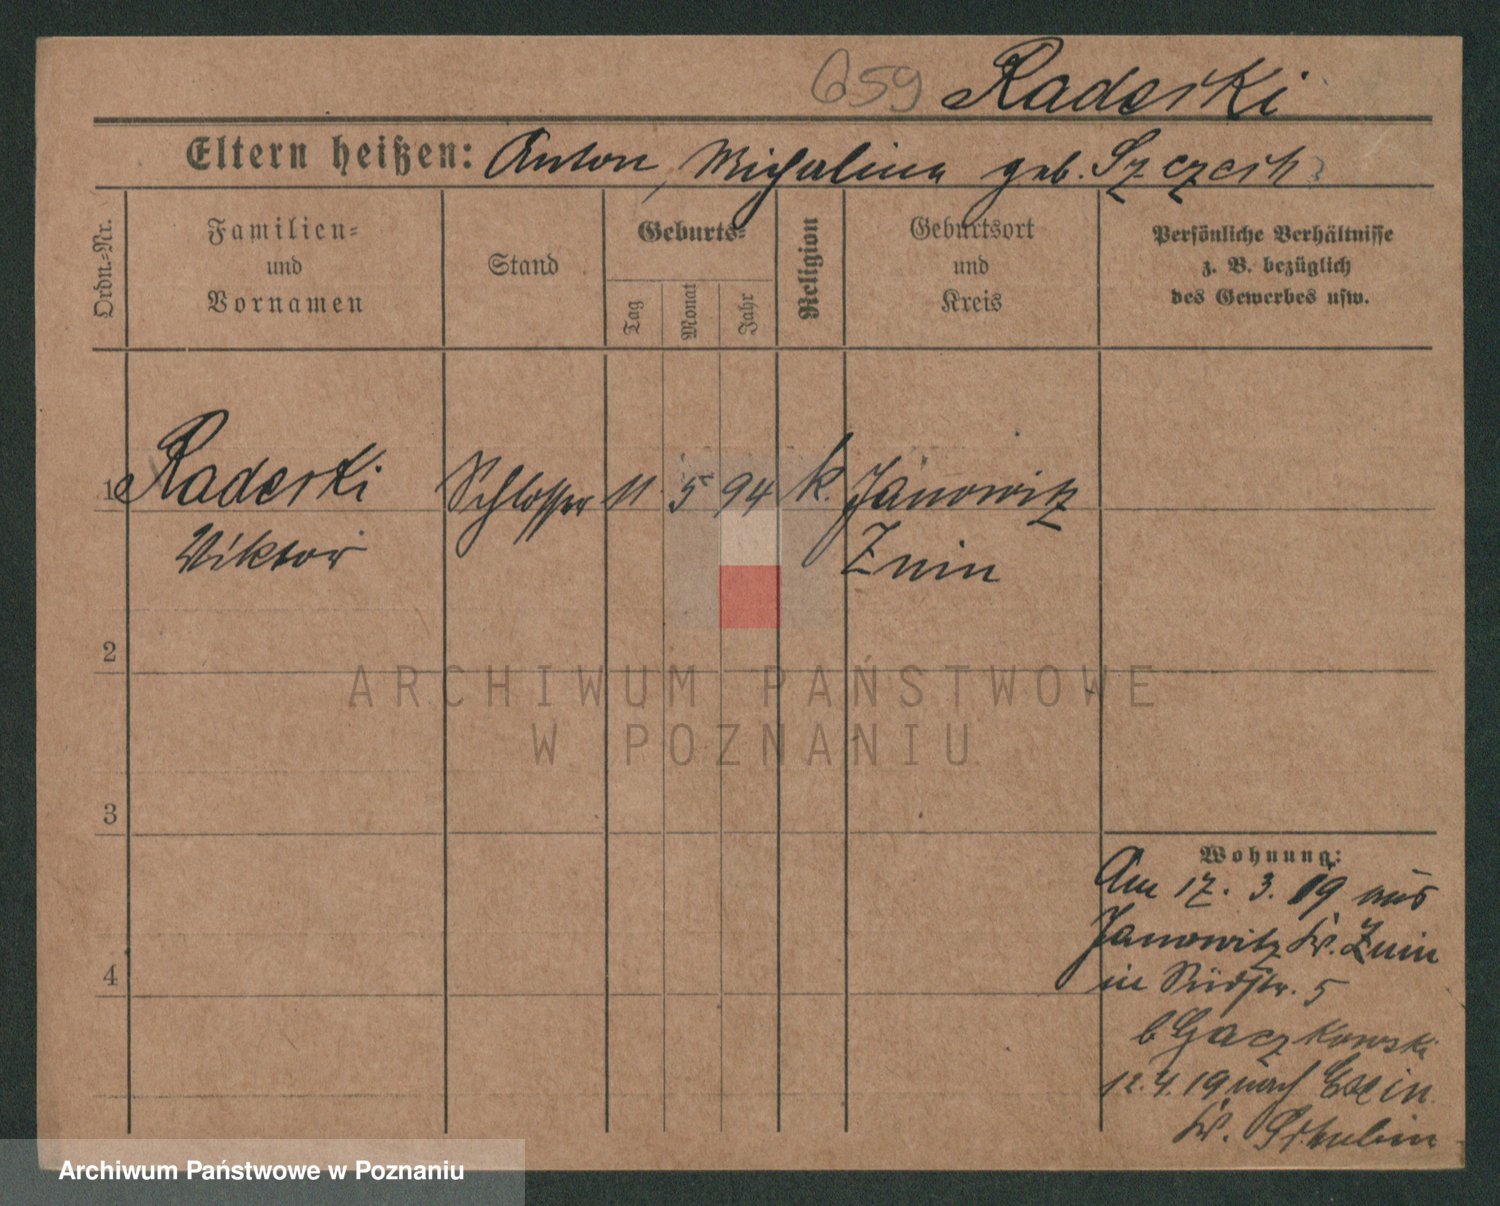 659 Raderski
Eltern heißen: Anton, Michalina geb. Szczesh
Ordn.-Nr.
Familien-
und
Vornamen
Stand
Geburts-
Tag
Monat
Jahr
Religion
Geburtsort
und
Kreis
Persönliche Verhältnisse
z. B. bezüglich
des Gewerbes usw.
1 Raderski Schlosser 11 5 94 k. Janowitz
Viktor Znin
2
ARCHIWUM PAŃSTWOWE
W POZNANIU
3
4
Wohnung:
Am 17. 3. 19 aus
Janowitz Kr. Znin
in Südstr. 5
b Gaczkowski
12.4.19 nach Exin
Kr. Schubin
Archiwum Państwowe w Poznaniu